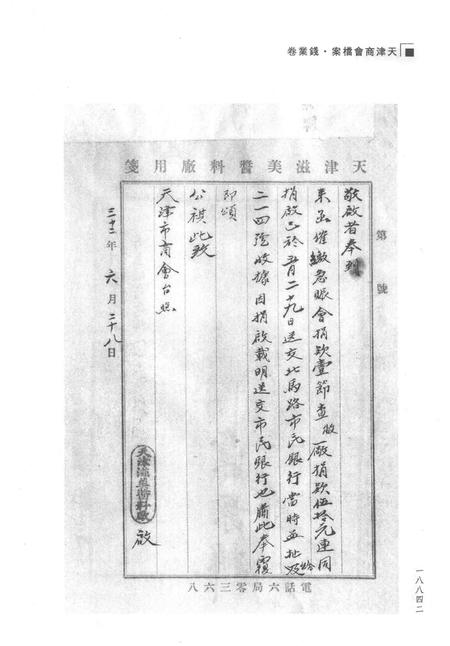 天津商會檔案·錢業卷
天津滋美醬料廠用箋
第 號
敬啟者奉到
來函催繳急賑會捐欵壹節查敝廠捐欵伍拾元連同
捐啟已於五月二十九日送交北馬路市民銀行當時並
二一四號收據因捐啟載明送交市民銀行也肅此奉覆
即頌
公祺此致
天津市商會台照
天津滋美醬料廠 啟
年六月二十八日
電話六局零三六八
一八八四二